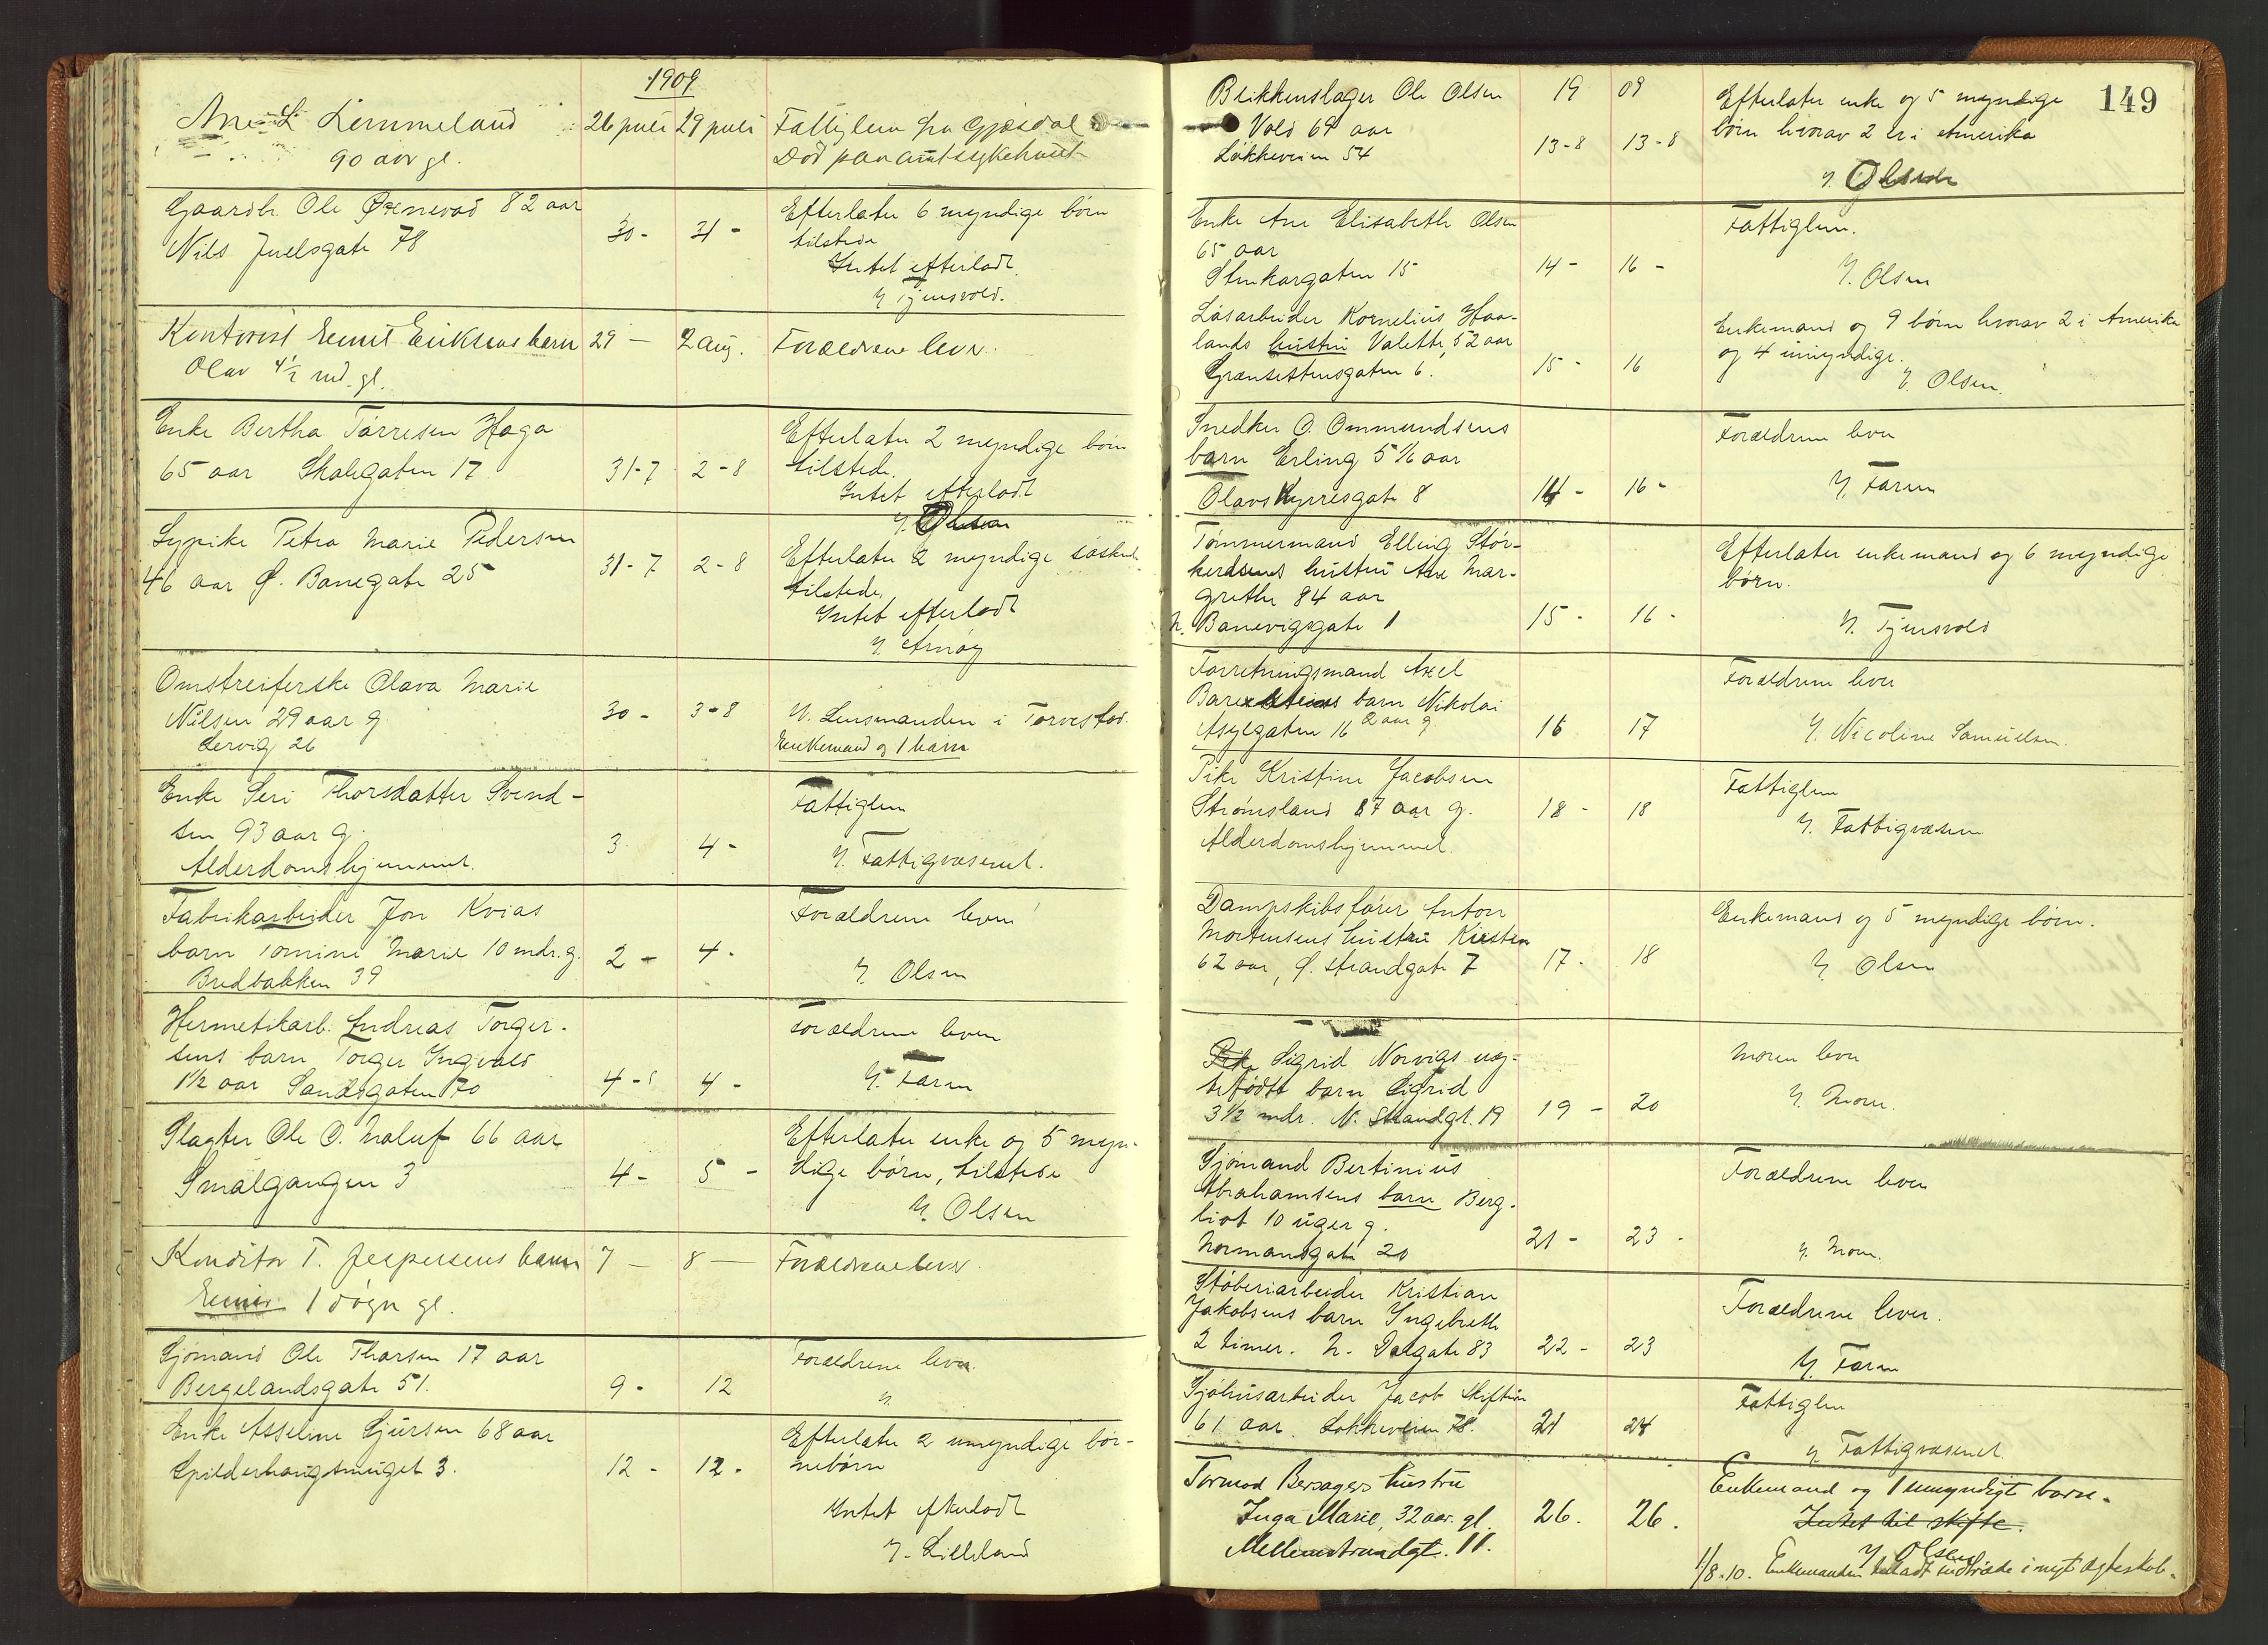 1909
Ane L. Lemmeland 26 juli 29 juli Fattiglem fra Gjæsdal
90 aar gl. Død paa amtsykehuset
Gaardbr. Ole Øxnevad 82 aar 30 - 31 - Efterlater 6 myndige børn
Nils Juelsgate 78 tilstede
Intet efterladt
Y. Tjensvold.
Kontorist Eriksens barn 29 — 2 aug. Forældrene lever.
Olav 4½ md. gl.
Enke Bertha Tørresen Haga Efterlater 2 myndige børn
65 aar Skolegaten 17 31-7 2-8 tilstede.
Intet efterladt
Y. Olsen
Sypike Petra Marie Pedersen Efterlater 2 myndige søsken
46 aar Ø. Banegate 25 31-7 2-8 tilstede.
Intet efterladt
Y. Arnøy
Omstreiferske Olava Marie
Nilsen 29 aar g. 30 - 3-8 Y. Lensmanden i Torvestad.
Lervig 26 Enkemand og 1 barn
Enke Seri Thorsdatter Svend- Fattiglem
sen 93 aar g. 3 4 - Y. Fattigvæsenet.
Alderdomshjemmet.
Fabrikarbeider Jon Kvias Forældrene lever
barn Tomine Marie 10 mdr. g. 2 - 4 -
Bredbakken 39 Y. Olsen
Hermetikarb. Andreas Torger- Forældrene lever
sens barn Torger Ingvald
1½ aar Sandsgaten 70 4 - 4 - Y. Farm
Slagter Ole O. Maluf 66 aar Efterlater enke og 5 myn-
Smalgangen 3 4 - 5 - dige børn, tilstede
Y. Olsen
Konditor T. Jespersens barn 7 — 8 — Forældrene lever.
1 døgn gl.
Sjømand Ole Thorsen 17 aar Forældrene lever
Bergelandsgate 51. 9 - 12 Y.
Enke Asseline Sjursen 68 aar Efterlater 2 umyndige bør-
Spilderhaugsmuget 3. 12 - 12 - nebørn
Intet efterladt
Y. Lilleland
149
Blikkenslager Ole Olsen 19 09 Efterlater enke og 5 myndige
Vold 69 aar børn hvorav 2 er i Amerika
Løkkeveien 54 13-8 13-8
Y. Olsen
Enke Ane Elisabeth Olsen Fattiglem.
65 aar
Stenkargaten 15 14 - 16 - Y. Olsen
Løsarbeider Kornelius Haa- Enkemand og 9 børn hvorav 2 i Amerika
lands hustru Valette, 52 aar og 4 umyndige.
Grænsestensgaten 6. 15 - 16 Y. Olsen.
Snedker O. Ommundsens Forældrene lever
barn Erling 5 1/6 aar
Olavs Kyrresgate 8 14 - 16 - Y. Faren
Tømmermand Elling Stør- Efterlater enkemand og 6 myndige
kersens hustru Ane Mar- børn.
grethe 84 aar
N. Banevigsgate 1 15 - 16 - Y. Tjensvold
Forretningsmand Axel Forældrene lever
barn Nikolai
Asylgaten 16 2 aar g. 16 17 Y. Nicoline Samuelsen.
Pike Kristine Jacobsen Fattiglem
Strømsland 87 aar g. 18 - 18 Y. Fattigvæsen
Alderdomshjemmet.
Dampskibsfører Anton Enkemand og 5 myndige børn.
Mortensens hustru Kirsten
62 aar, Ø. Strandgate 7 17 - 18 Y. Olsen
Pike Sigrid Norvigs uæg- Moren lever
tefødte barn Sigrid
3½ mdr. N. Strandgt. 19 19 - 20 Y. Moren.
Sjømand Bertinius Forældrene lever
Abrahamsens barn Berg-
liot 10 uger g.
Normansgate 20 21 - 23 - Y. Moren.
Støberiarbeider Kristian Forældrene lever.
Jakobsens barn Ingebreth
2 timer. N. Dalgate 83 22 - 23 Y. Faren
Sjøhusarbeider Jacob Fattiglem
61 aar. Løkkeveien 78. 21 24 Y. Fattigvæsenet
Tormod Bersagers hustru Enkemand og 1 umyndigt barn.
Inga Marie, 32 aar gl. 26. 26. Intet til skifte.
Mellemstrandgt. 11. Y. Olsen
1/8-10. Enkemanden indtræde i nyt ægteskab.